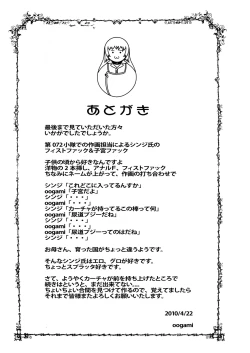 あとがき
最後まで見ていただいた方々
いかがでしたでしょうか。
第072小隊での作画担当によるシンジ氏の
フィストファック&子宮ファック
子供の頃から好きなんですよ
洋物の2本挿し、アナルF、フィストファック
ちなみにネームが上がって、作画の打ち合わせで
シンジ「これどこに入ってるんすか」
oogami「子宮だよ」
シンジ「・・・」
oogami「・・・」
シンジ「カーチャが持ってるこの棒って何」
oogami「尿道ブジーだね」
シンジ「・・・」
oogami「尿道ブジーってのはだね」
お母さん、育った国がちょっと違うようです。
そんなシンジ氏はエロ、グロが好きです。
ちょっとスプラッタ好きです。
さて、ようやくカーチャが前を持ち上げたところで
続きはというと、まだ出来てない....
ちょいちょい合間を見つけて作るので、覚えてましたら
それまで皆様またよろしくお願いいたします。
2010/4/22
oogami